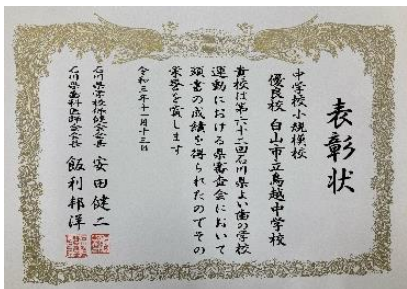 表彰状
中学校小規模校
優良校 白山市立鳥越中学校
貴校は第六十二回石川県よい歯の学校
運動における県審査会において
頭書の成績を得られたのでその
栄誉を賞します
令和三年十一月十三日
石川県学校保健会会長 安田健二
石川県歯科医師会会長 飯利邦洋